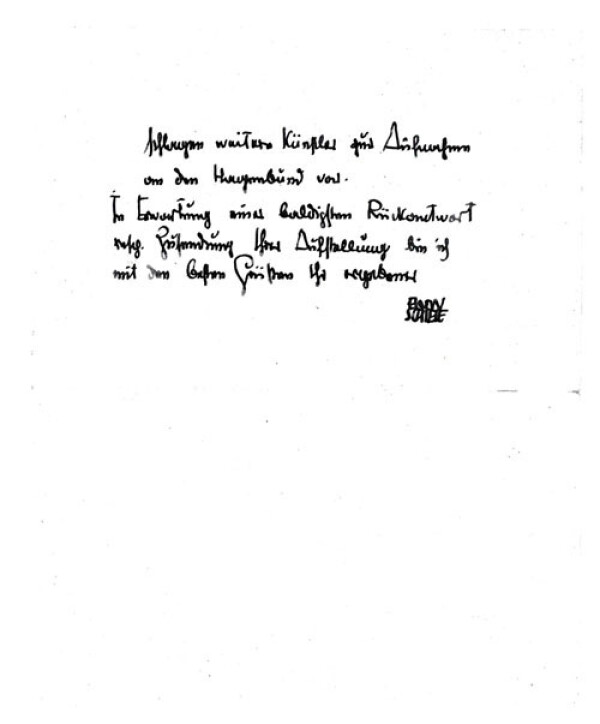 schlagen weitere Künstler zur Aufnahme
an den Hagenbund vor.
In Erwartung einer baldigsten Rückantwort
resp. Zusendung Ihrer Aufstellung bin ich
mit den besten Grüßen Ihr ergebener
EGON
SCHIELE